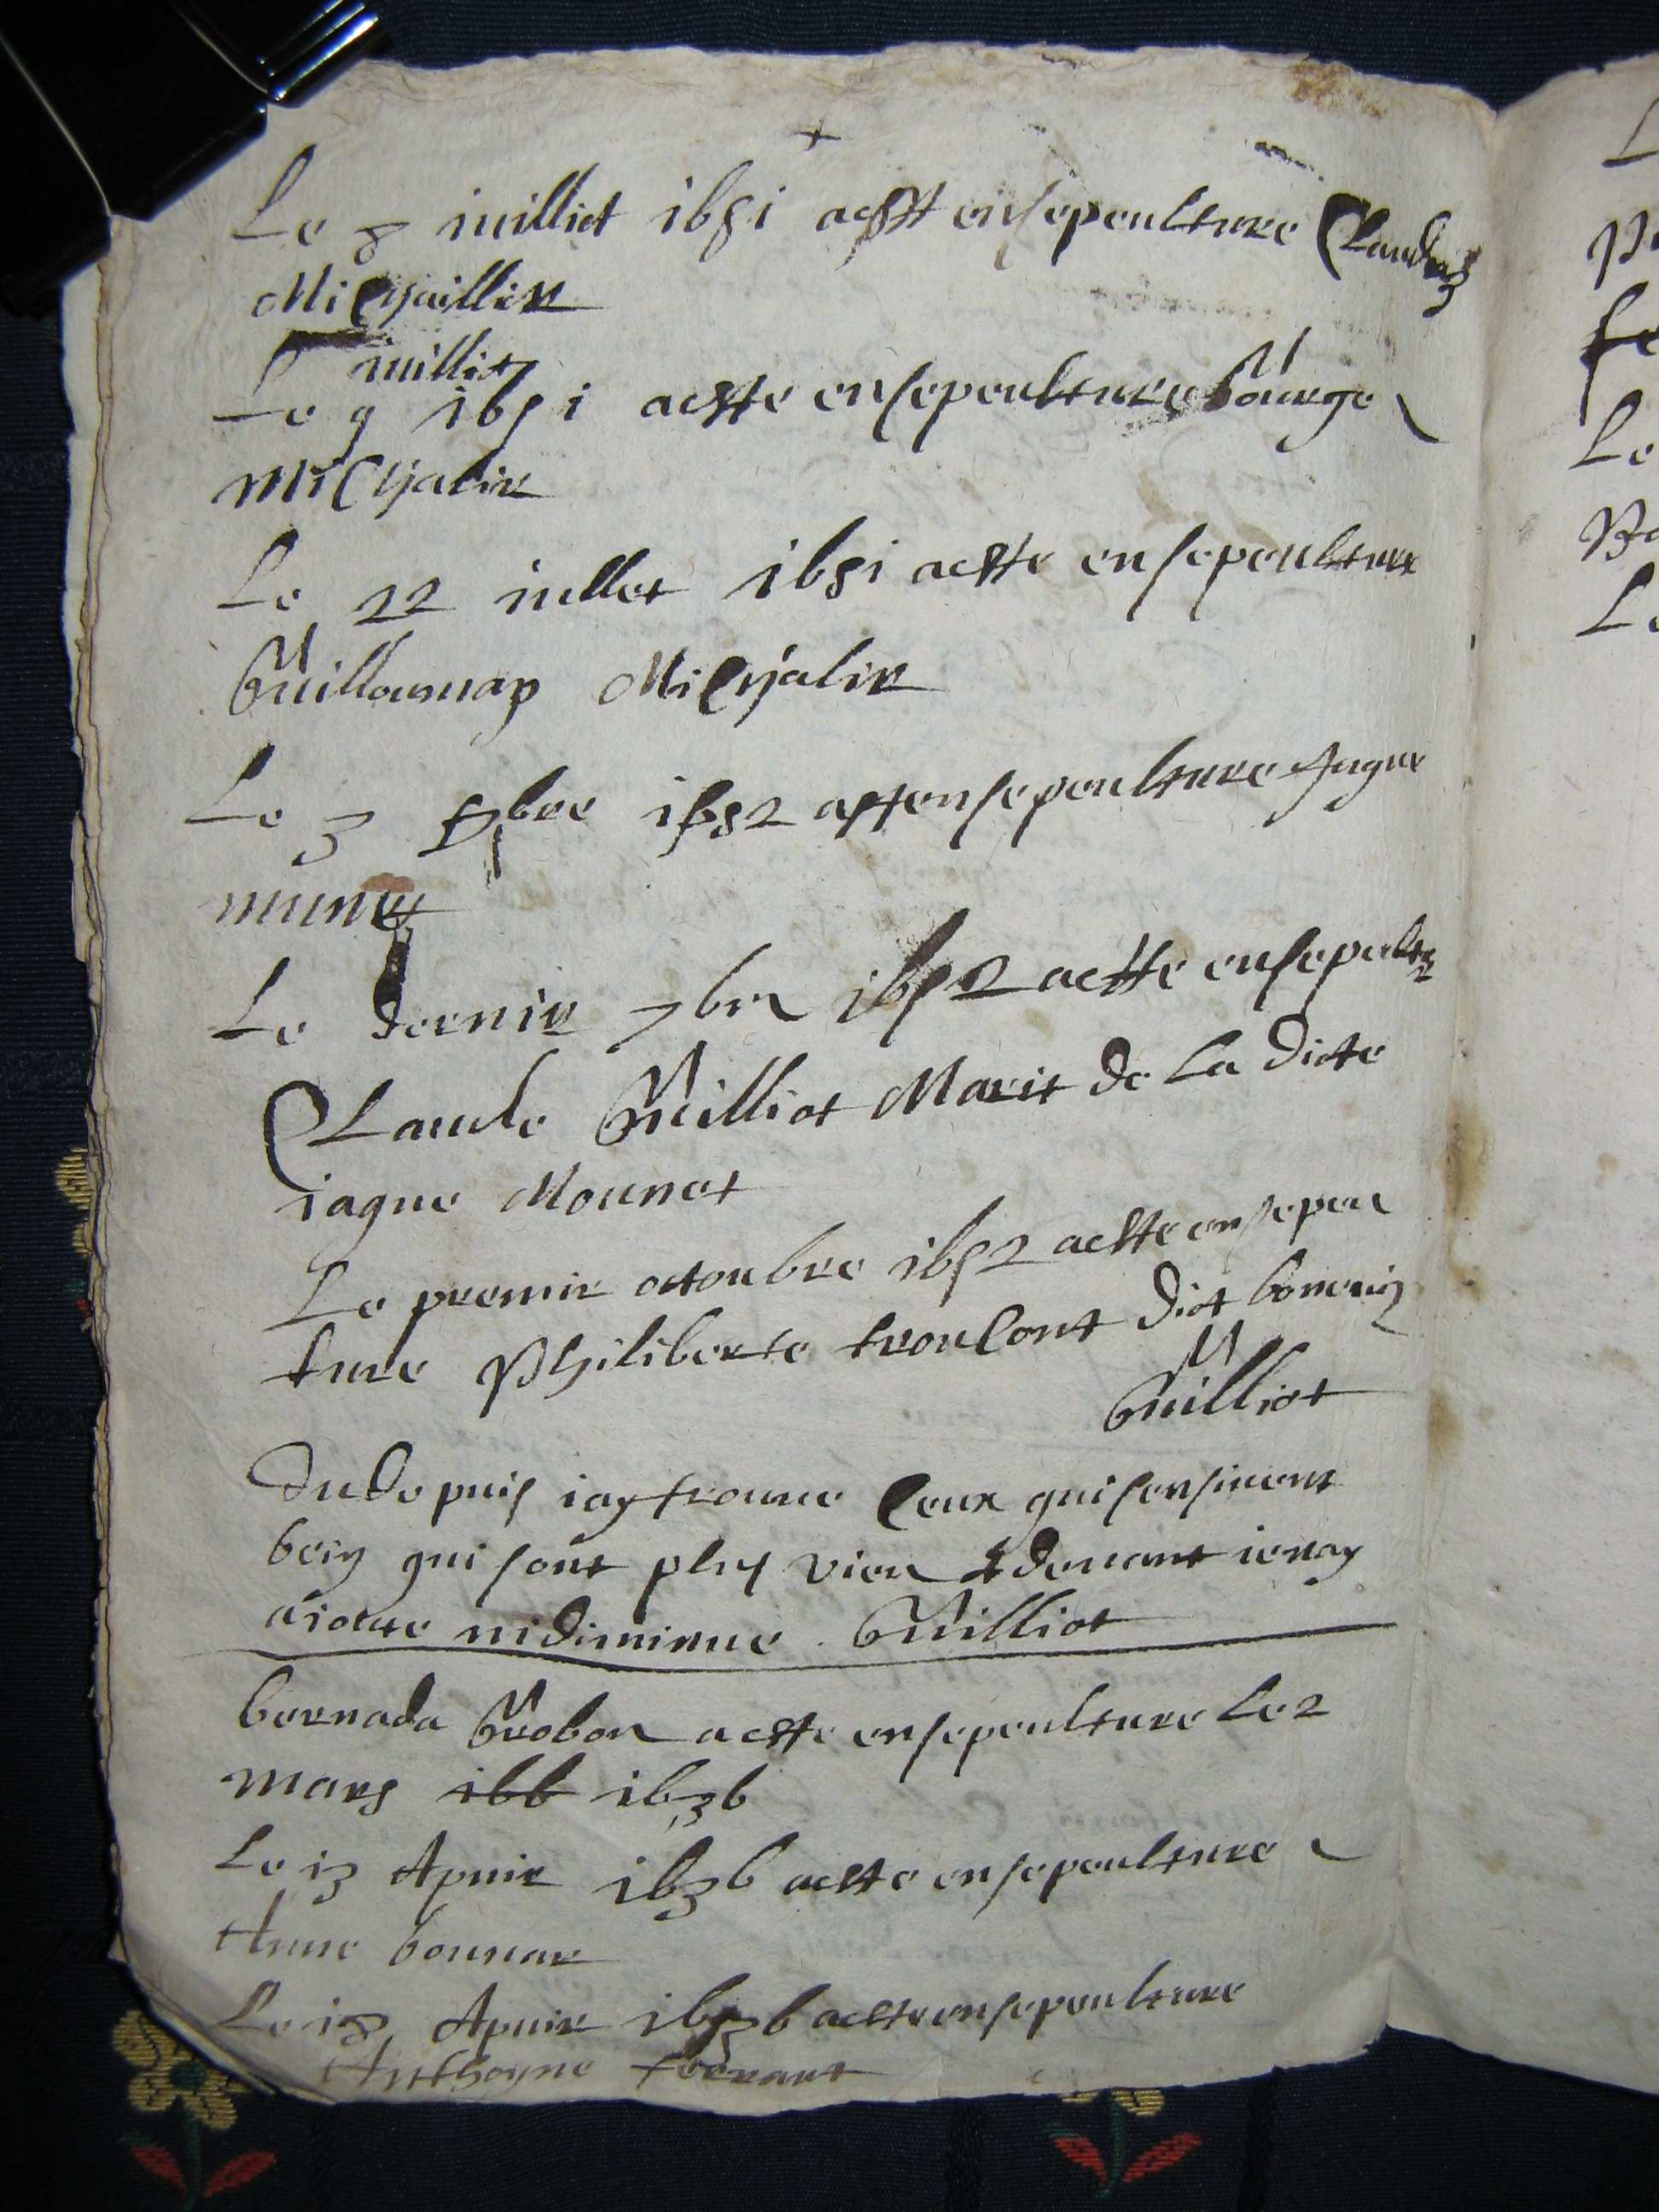 Le 8 iuilliet 1651 aestt ensepeulture Claudin
Michaillir
iuilliet
Le 9 1651 aestte ensepeulture bourge
Michalir
Le 22 iullet 1651 aestte ensepeulture
Guilloumap Michalir
Le 3 7bre 1652 aestt ensepeulture Jaque
Le dernir 7bre 1652 aestte ensepeultu
Claude Guilliot Marit de la dicte
iaque Mounet
Le premir octoubre 1652 aestte ensepeu
ture Philiberte troucont dict
Guilliot
Dudepuis iay trouue ceux qui sensiuent
bein qui sont plus vieu deuant ienay
aiotte ni diminue. Guilliot
bernada Grobon aestte ensepeulture le 2
mars 166 1636
Le 13 Apuir 1636 aestte ensepeulture
Anne bounar
Le 18 Apuir 1636 aestte ensepeulture
Anthoyne ferrant
L
P
fe
Le
L